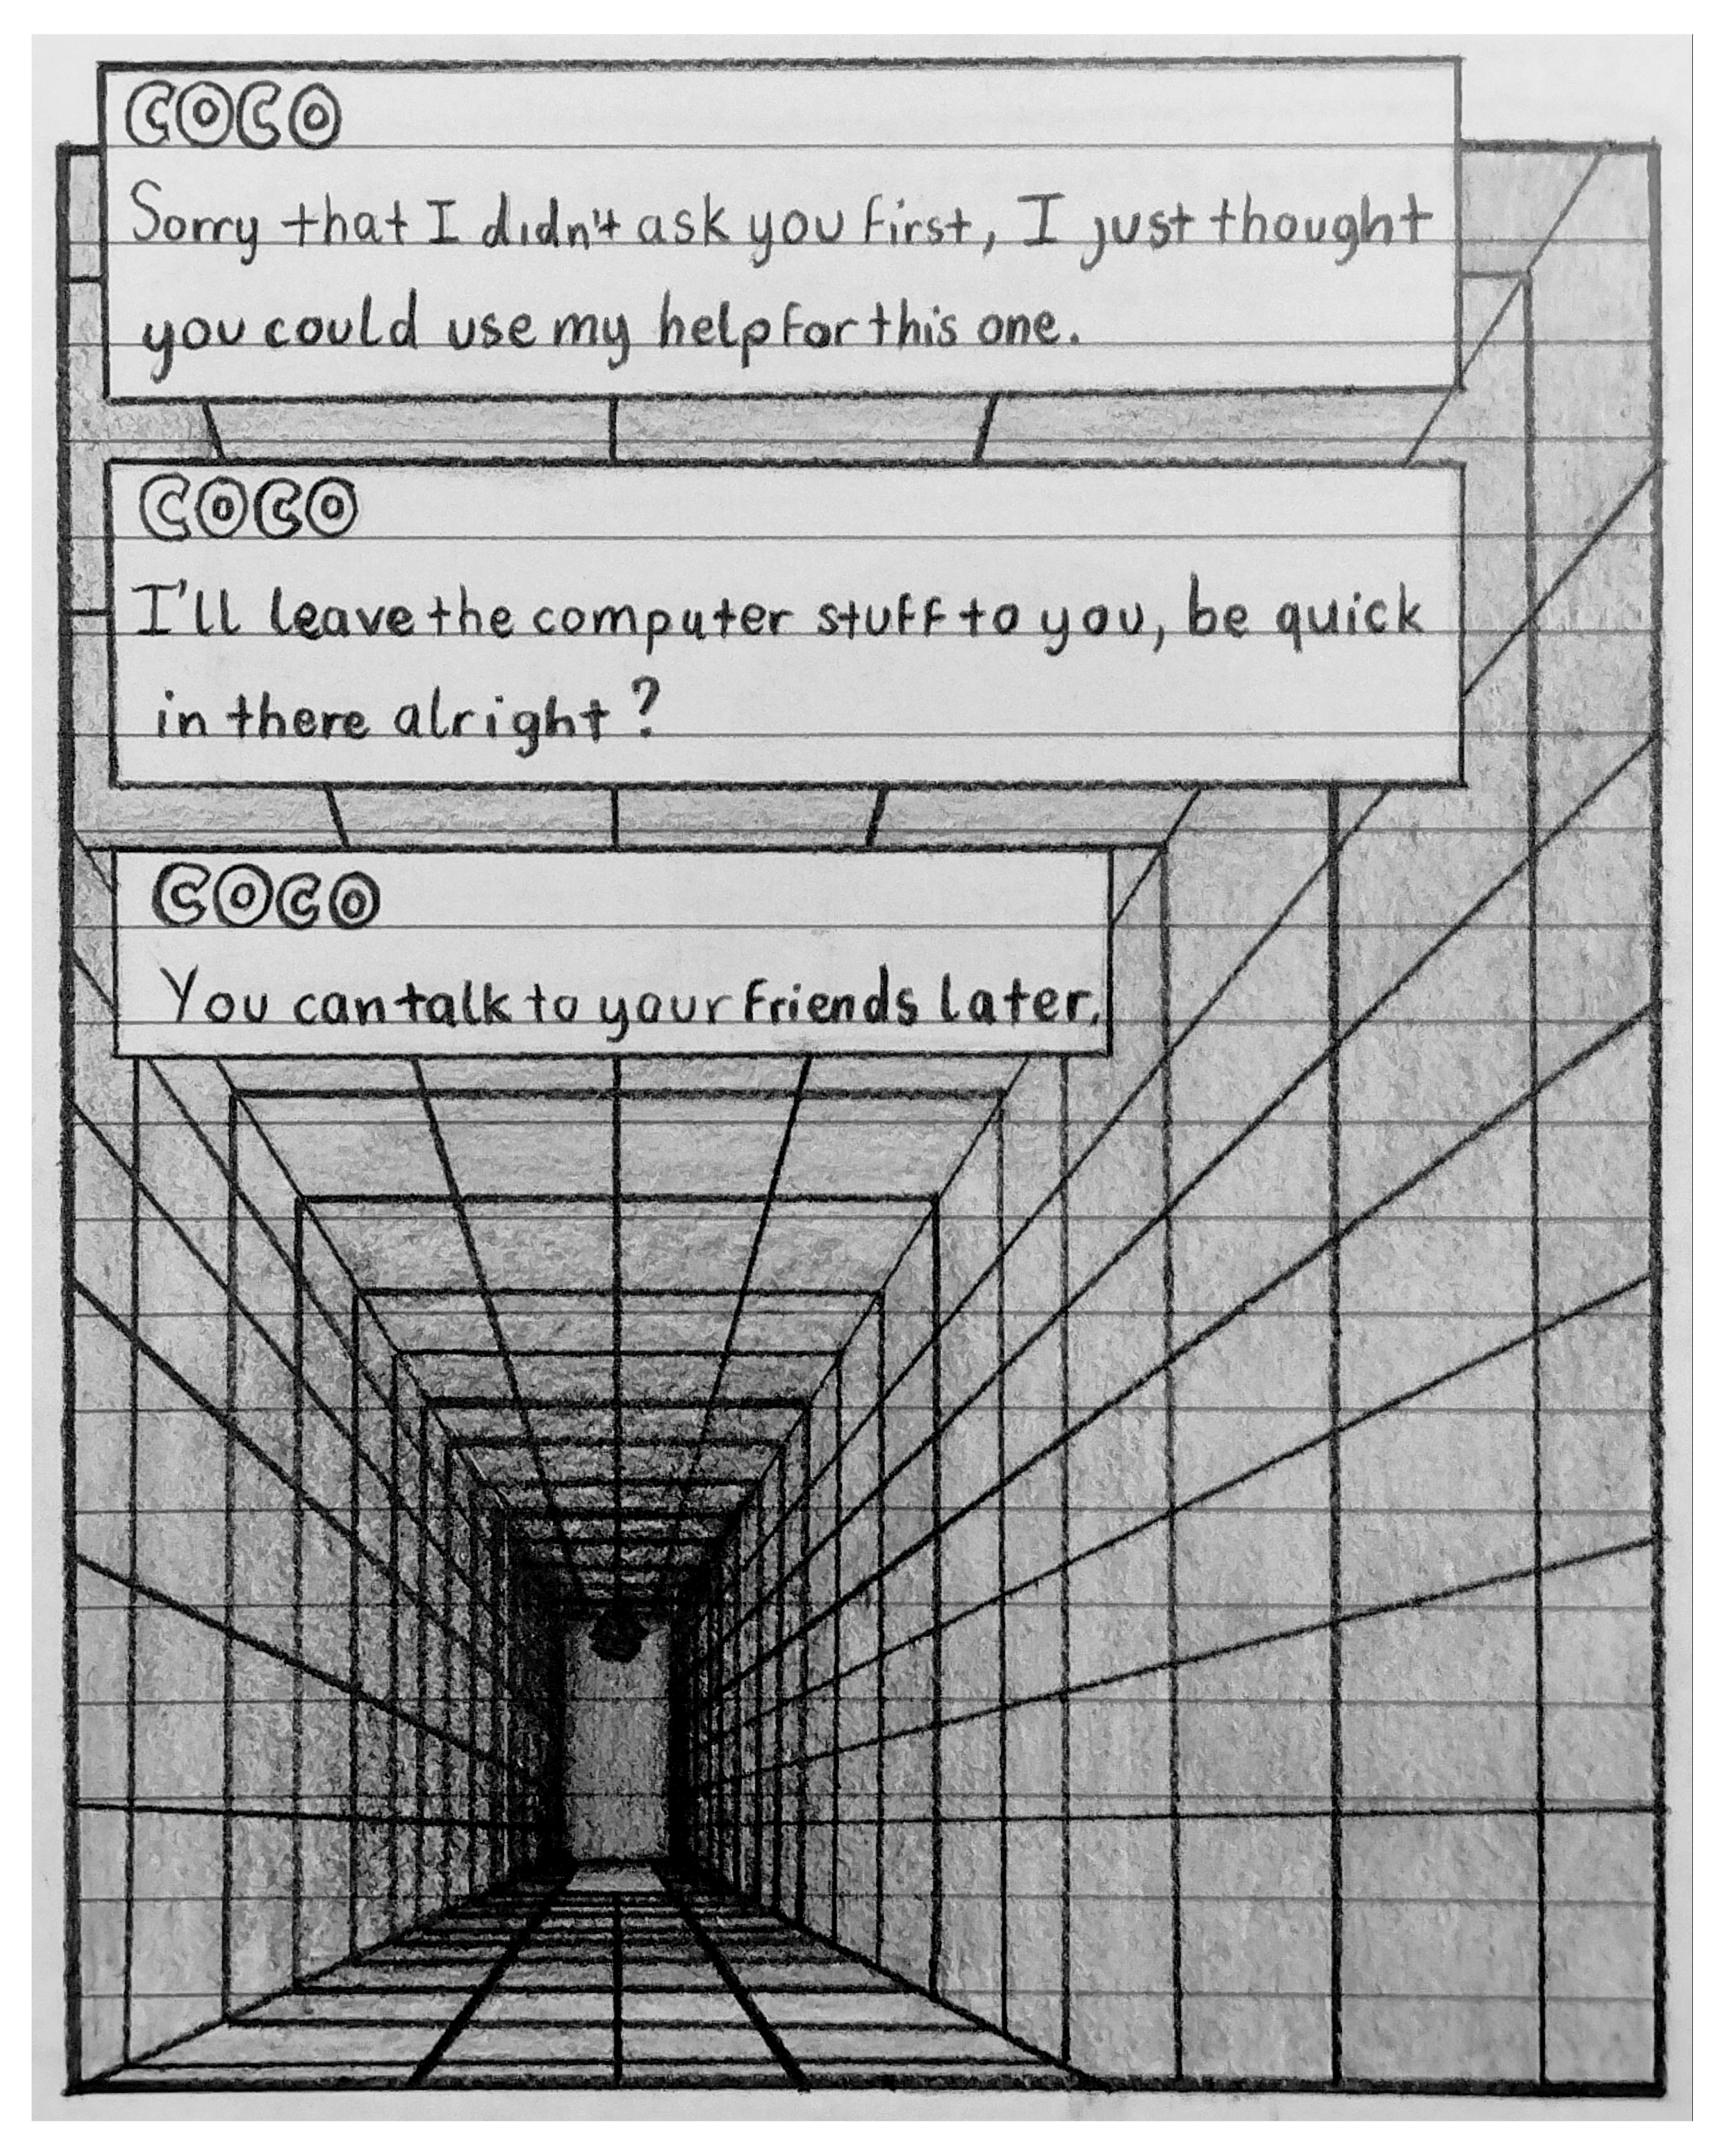 COCO
Sorry that I didn't ask you first, I just thought
you could use my help for this one.
COCO
I'll leave the computer stuff to you, be quick
in there alright?
COCO
You can talk to your friends later.